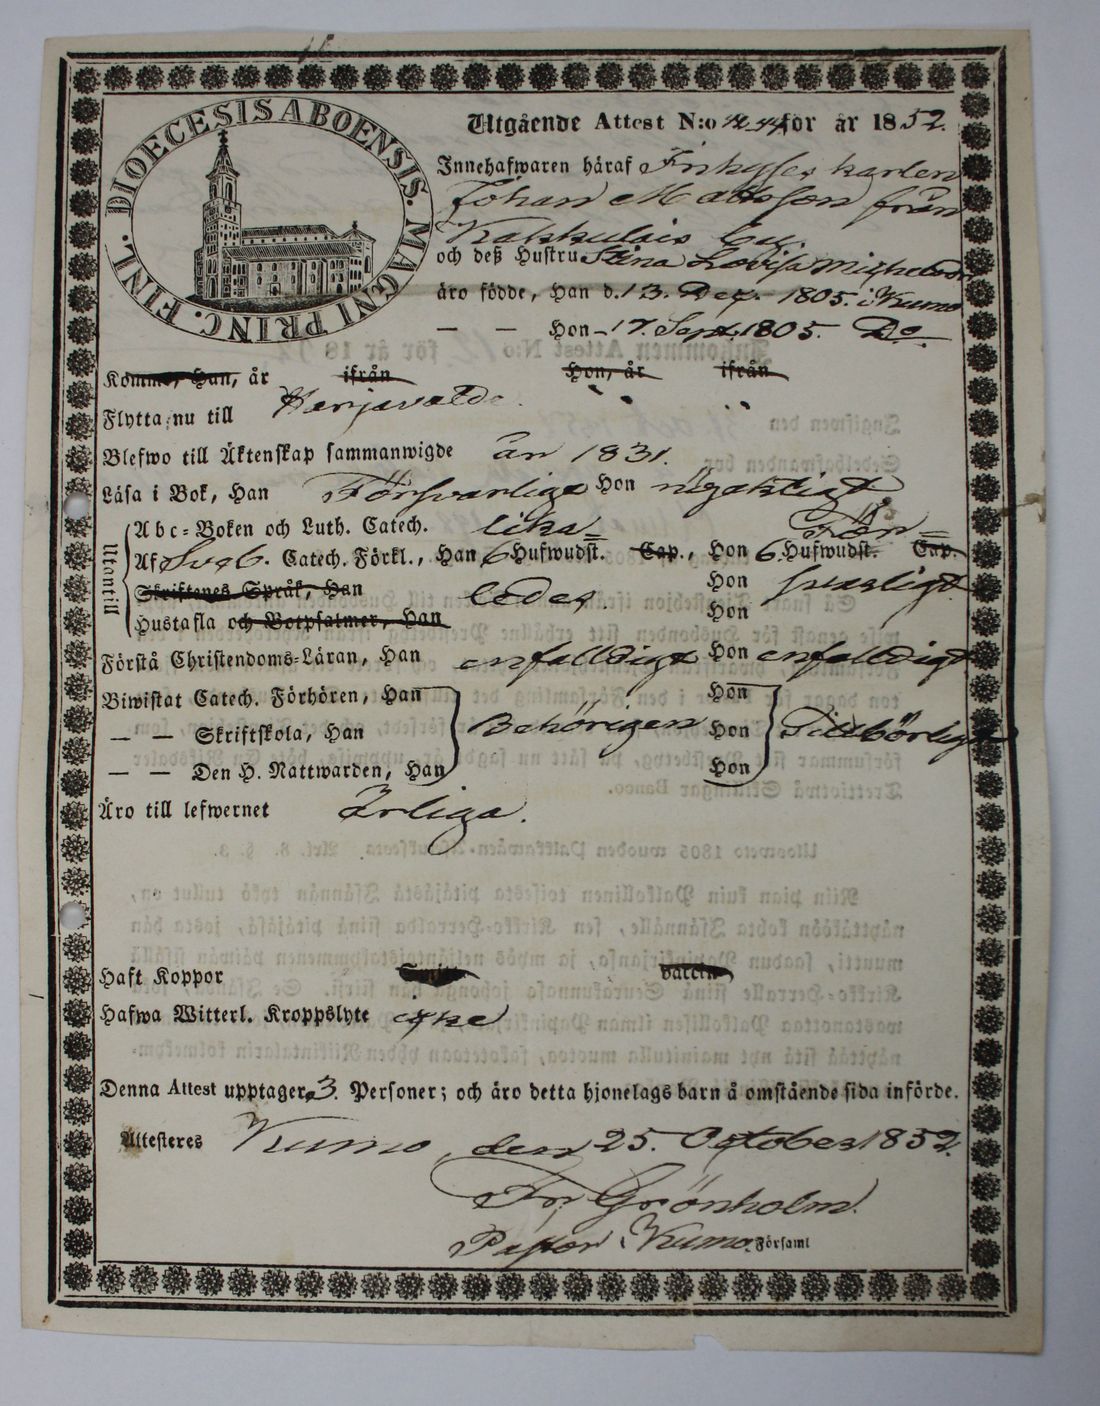 DIOECESIS ABOENSIS. MAGNI PRINC. FINL.
Utgående Attest N:o för år 1852.
Innehafwaren häraf Inhyses karlen
Johan Mattsson från
Kakkulais by.
och deß Hustru Stina Lovisa Michelsdr
äro födde, Han d. 13. Dec. 1805. i Kumo
— — Hon 17. Sept. 1805. Do
Komme, Han, år ifrån Hon, år ifrån
Flytta nu till Harjavalda.
Blefwo till Äktenskap sammanwigde år 1831.
Läsa i Bok, Han Försvarliga Hon någaktligt
Utantill
Abc-Boken och Luth. Catech. lika
Af Sveb. Catech. Förkl., Han 6 Hufwudst. Cap., Hon 6 Hufwudst. Cap.
Skriftenes Språk, Han ledes Hon svagligt
Hustafla och Botpsalmer, Han Hon
Förstå Christendoms-Läran, Han enfalldigt Hon enfalldigt
Biwistat Catech. Förhören, Han Hon
— — Skriftskola, Han Behörigen Hon Tillbörligt
— — Den H. Nattwarden, Han Hon
Äro till lefwernet Ärliga.
Haft Koppor
Hafwa Witterl. Kroppslyte icke
Denna Attest upptager 3. Personer; och äro detta hjonelags barn å omstående sida införde.
Attesteres Kumo, den 25. October 1852.
Fr. Grönholm.
Pastor i Kumo Församl